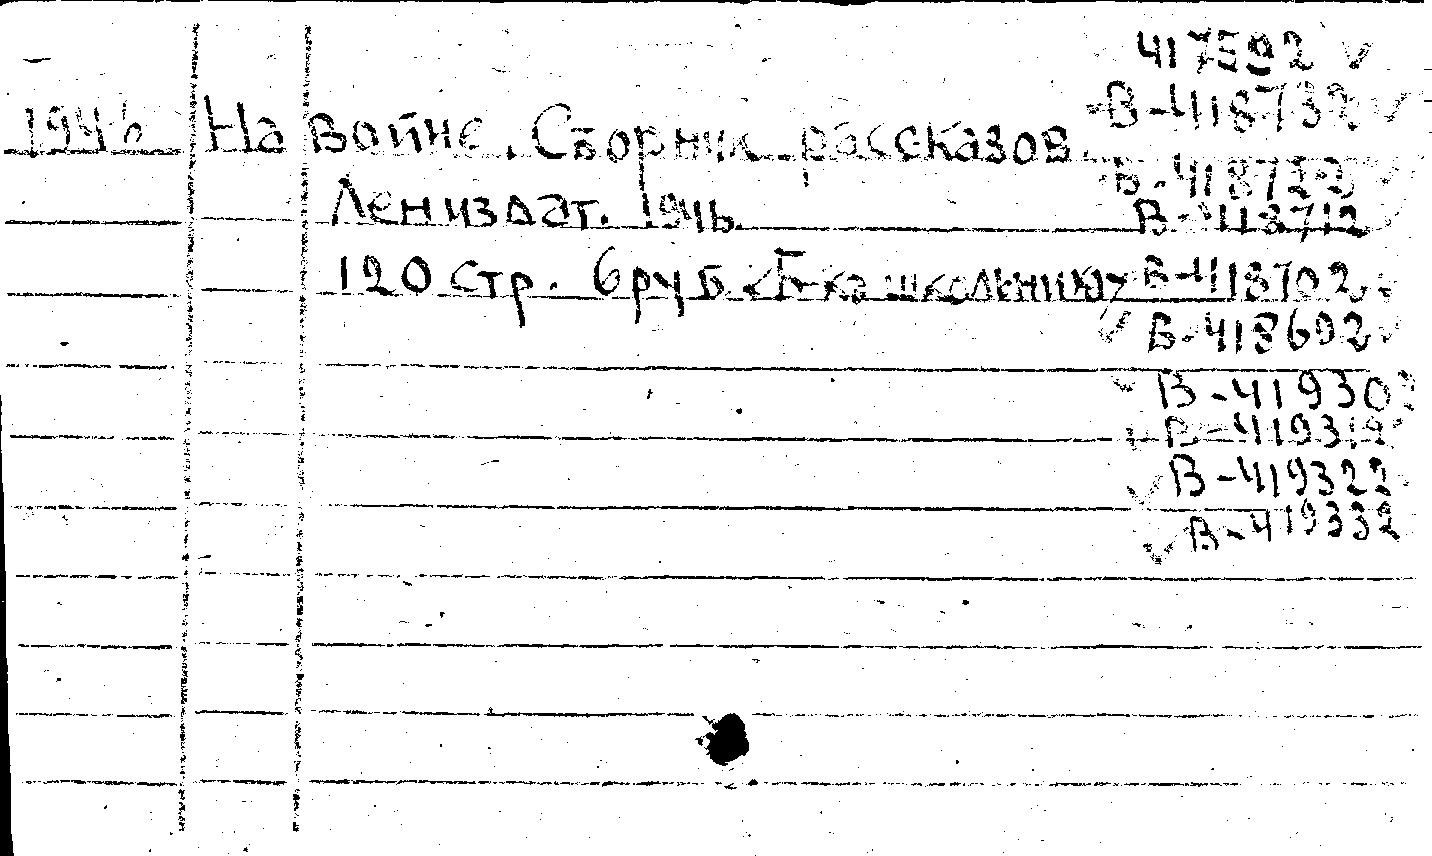 417592
1946 На войне. Сборник рассказов.
В-418732
В-418722
Лениздат. 1946.
В-418712
120 стр. 6 руб. <Б-ка школьника>
В-418702
В-418692
В-419302
В-419312
В-419322
В-419332